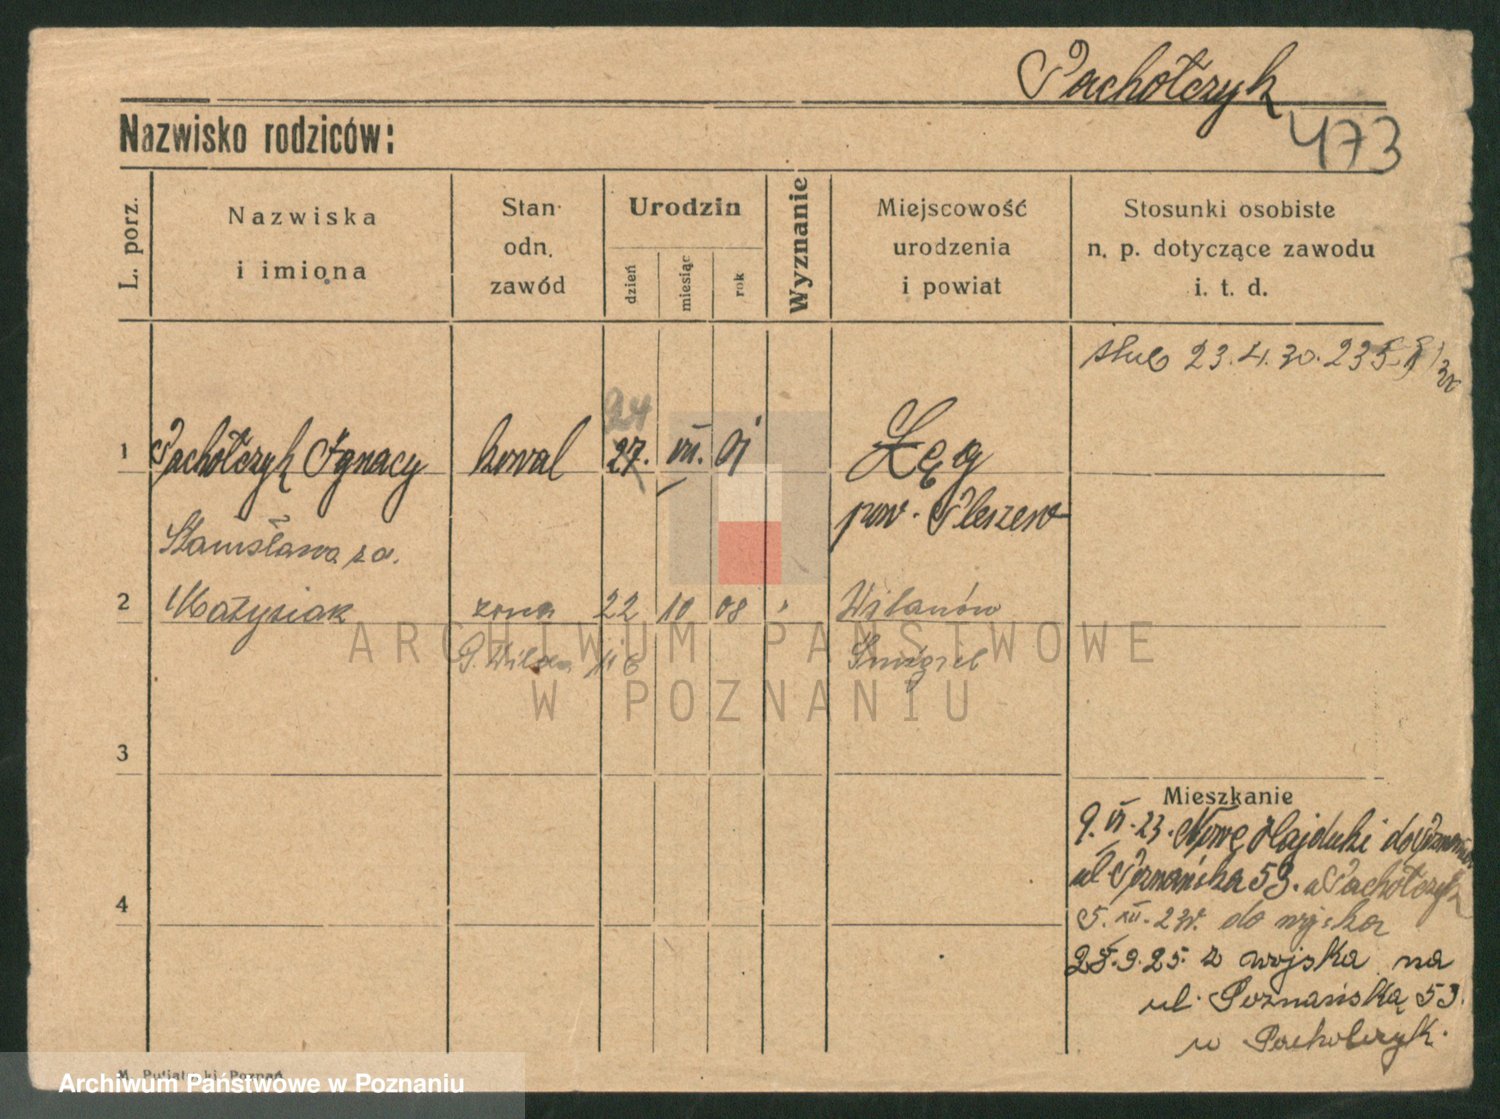 Pachołczyk
473
Nazwisko rodziców:
L. porz.
Nazwiska
i imiona
Stan
odn.
zawód
Urodzin
dzień
miesiąc
rok
Wyznanie
Miejscowość
urodzenia
i powiat
Stosunki osobiste
n. p. dotyczące zawodu
i. t. d.
ślub 23.4.30. 235
24
1 Pachołczyk Ignacy kowal 27. VII. 01 Łęg
pow. Pleszew
Stanisława za.
2 Matysiak żona 22 10 08 Wilanów
G. Wilda Śmigiel
3
Mieszkanie
9. VI. 23. Nowe Hajduki do Poznania
ul. Poznańska 53. u Pachołczyk
4
5. XII. do wojska
28.9.25. z wojska na
ul. Poznańską 53.
u Pachołczyk.
M. Putiatycki, Poznań
ARCHIWUM PAŃSTWOWE
W POZNANIU
Archiwum Państwowe w Poznaniu